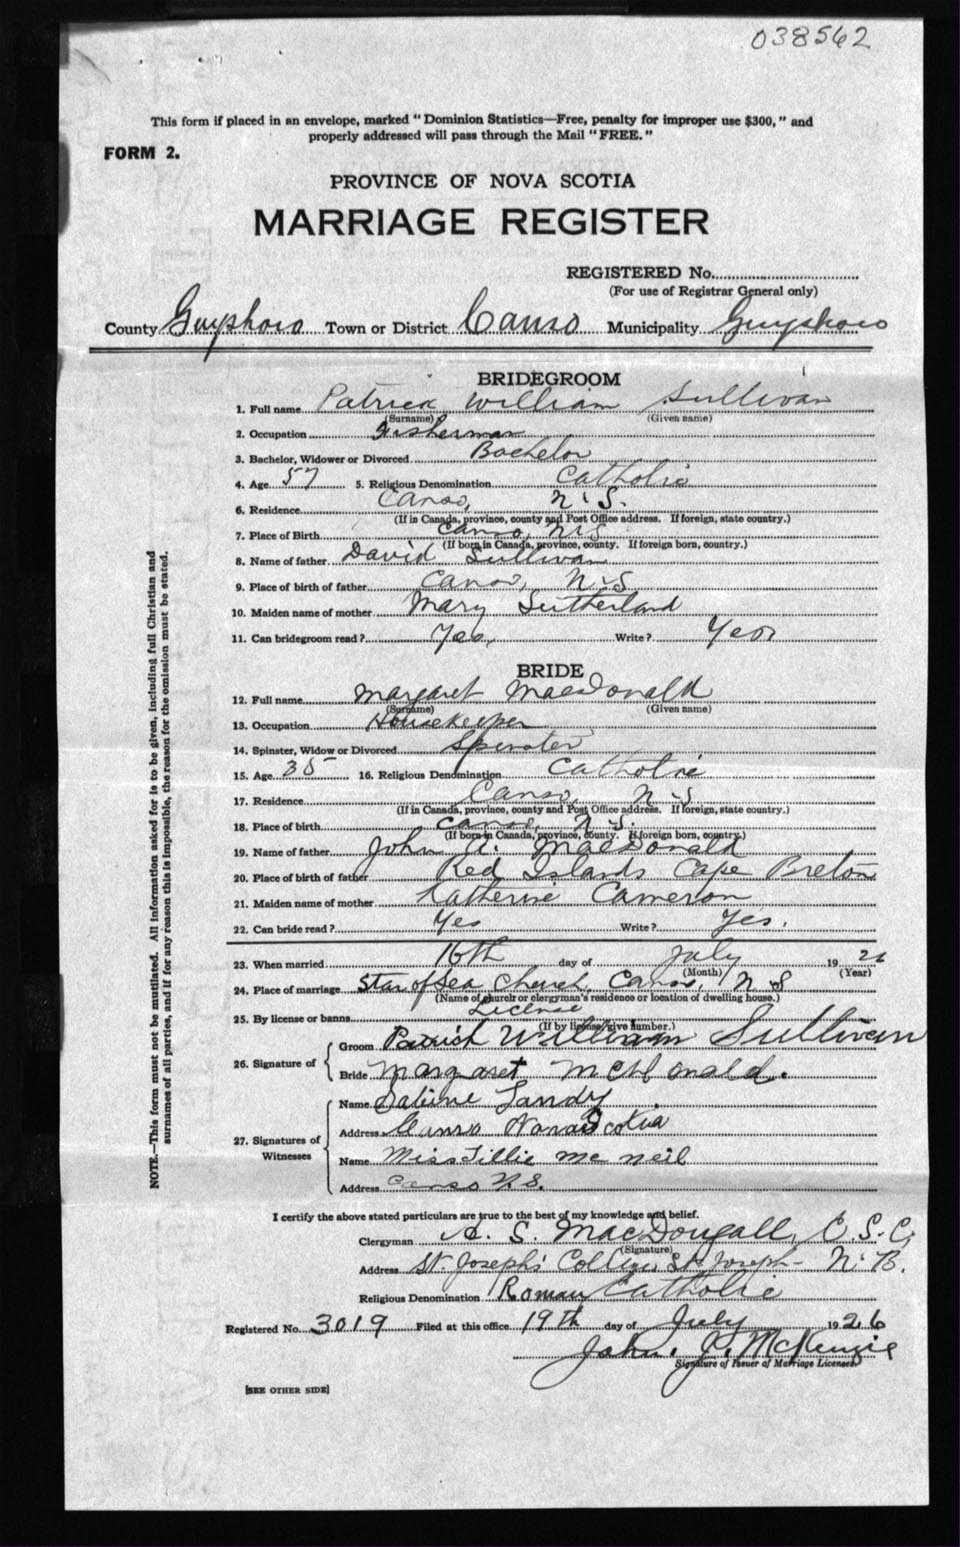 038562
This form if placed in an envelope, marked "Dominion Statistics—Free, penalty for improper use $300," and
properly addressed will pass through the Mail "FREE."
FORM 2.
PROVINCE OF NOVA SCOTIA
MARRIAGE REGISTER
REGISTERED No.
(For use of Registrar General only)
County Guysboro Town or District Canso Municipality Guysboro
BRIDEGROOM
1. Full name Patrick William Sullivan
(Surname) (Given name)
2. Occupation Fisherman
3. Bachelor, Widower or Divorced Bachelor
4. Age 57 5. Religious Denomination Catholic
6. Residence Canso, N.S.
(If in Canada, province, county and Post Office address. If foreign, state country.)
7. Place of Birth Canso, N.S
(If born in Canada, province, county. If foreign born, country.)
8. Name of father David Sullivan
9. Place of birth of father Canso, N.S
10. Maiden name of mother Mary Sutherland
11. Can bridegroom read? Yes, Write? Yes
BRIDE
12. Full name Margaret MacDonald
(Surname) (Given name)
13. Occupation Housekeeper
14. Spinster, Widow or Divorced Spinster
15. Age 35 16. Religious Denomination Catholic
17. Residence Canso, N.S
(If in Canada, province, county and Post Office address. If foreign, state country.)
18. Place of birth Canso, N.S.
(If born in Canada, province, county. If foreign born, country.)
19. Name of father John A. MacDonald
20. Place of birth of father Red Islands Cape Breton
21. Maiden name of mother Katherine Cameron
22. Can bride read? Yes Write? Yes.
23. When married 16th day of July 19 26
(Month) (Year)
24. Place of marriage Star of Sea Church, Canso, N S
(Name of church or clergyman's residence or location of dwelling house.)
25. By license or banns License
(If by license, give number.)
26. Signature of
Groom Patrick William Sullivan
Bride Margaret McDonald.
27. Signatures of Witnesses
Name Landry
Address Canso Nova Scotia
Name Miss Tillie Mc Neil
Address Canso N.S.
I certify the above stated particulars are true to the best of my knowledge and belief.
Clergyman A. S. MacDougall, C.S.C,
(Signature)
Address St. Joseph's College, St. Joseph- N.B.
Religious Denomination Roman Catholic
Registered No. 3019 Filed at this office 19th day of July 1926
John. J. McKenzie
Signature of Issuer of Marriage Licenses
[SEE OTHER SIDE]
NOTE.—This form must not be mutilated. All information asked for is to be given, including full Christian and
surnames of all parties, and if for any reason this is impossible, the reason for the omission must be stated.